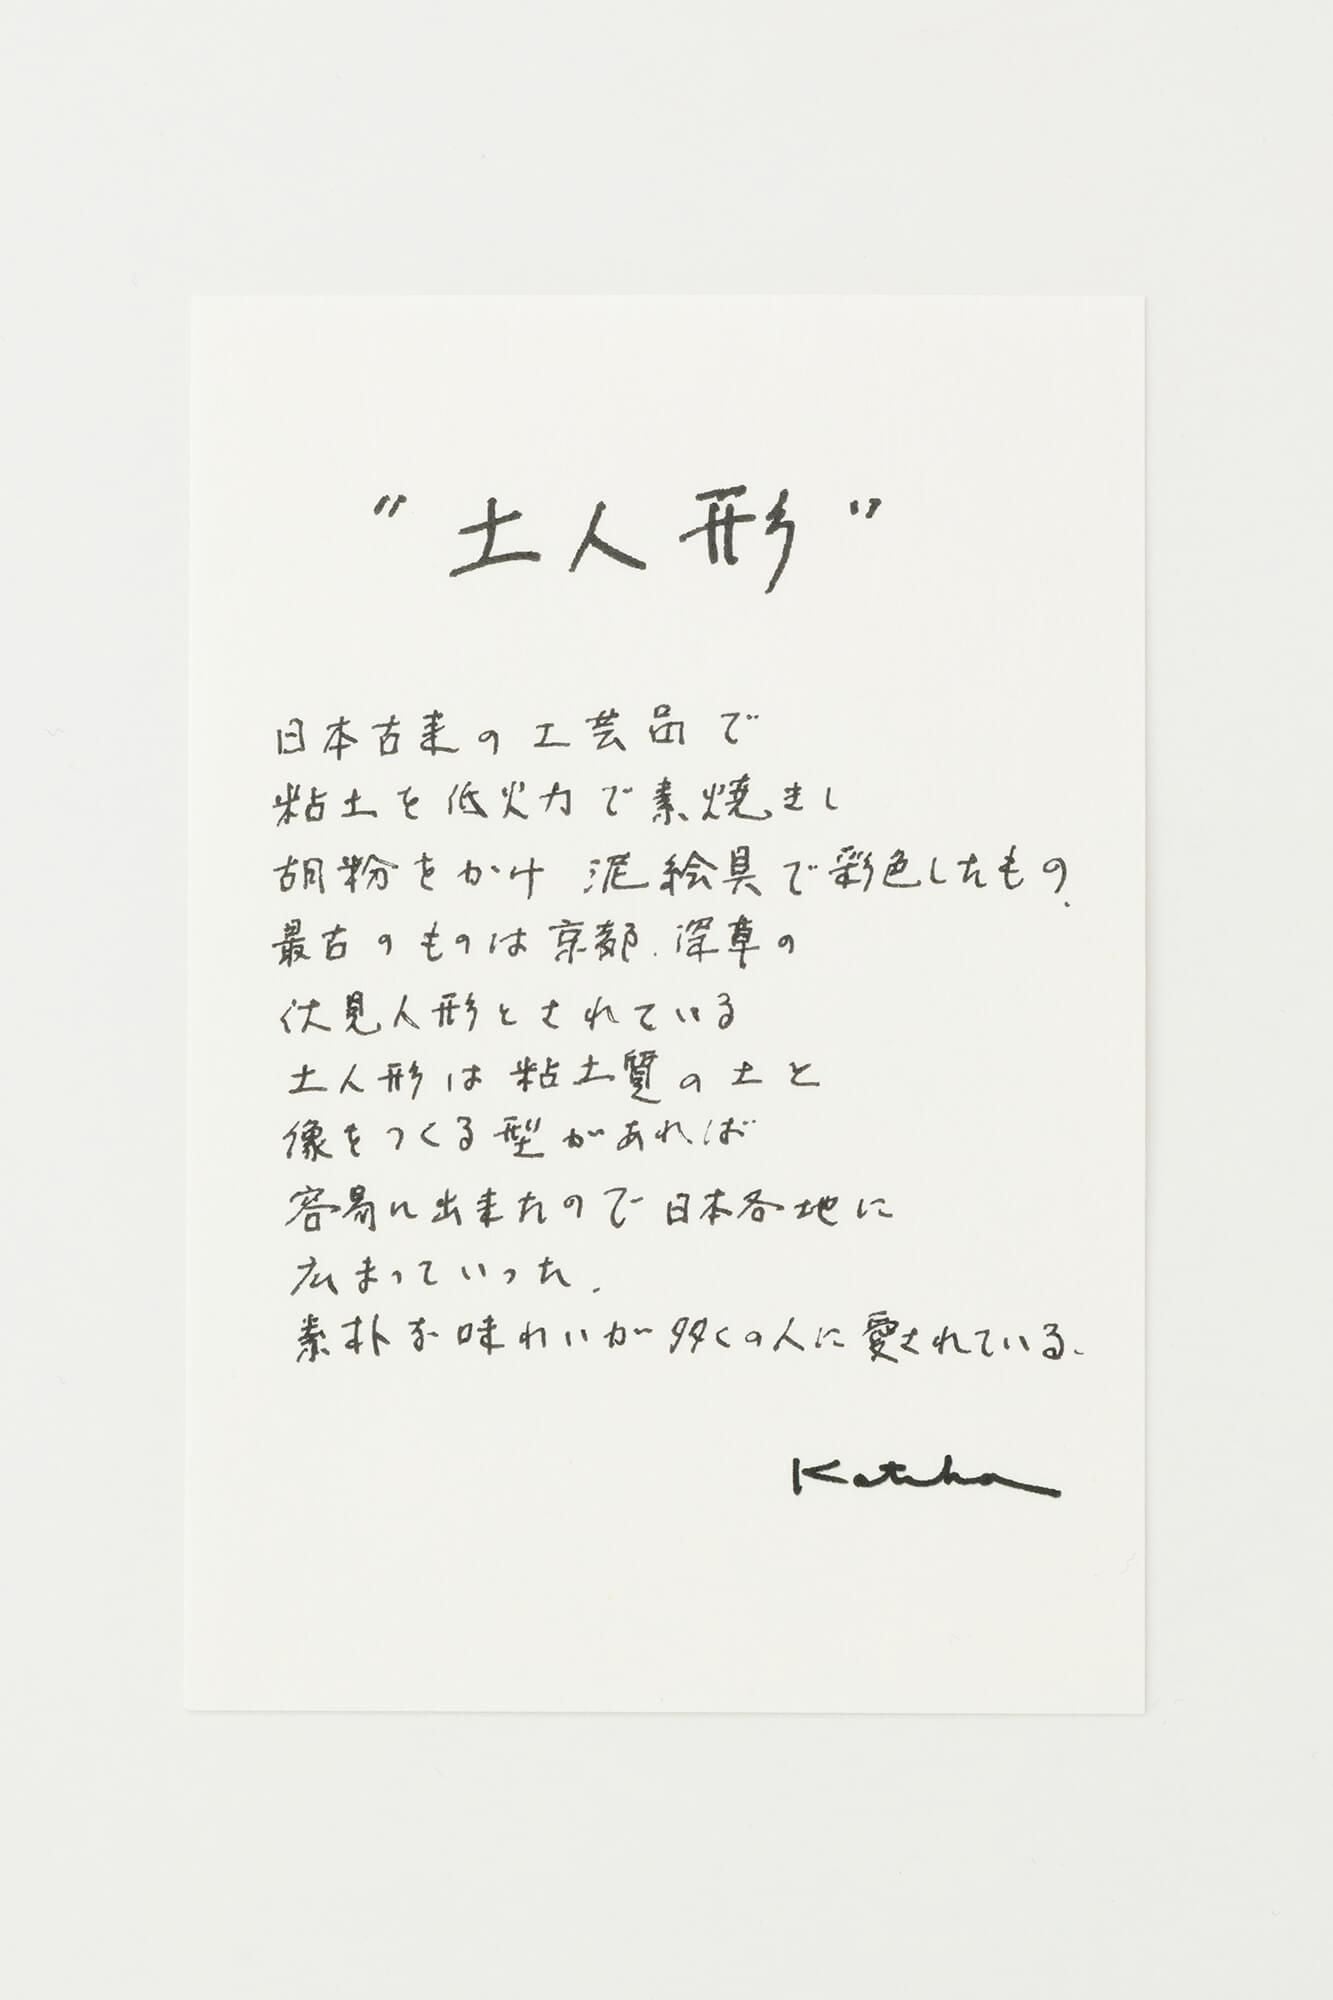 "土人形"
日本古来の工芸品で
粘土を低火力で素焼きし
胡粉をかけ 泥絵具で彩色したもの.
最古のものは京都.深草の
伏見人形とされている
土人形は粘土質の土と
像をつくる型があれば
容易に出来たので日本各地に
広まっていった.
素朴な味わいが多くの人に愛されている.